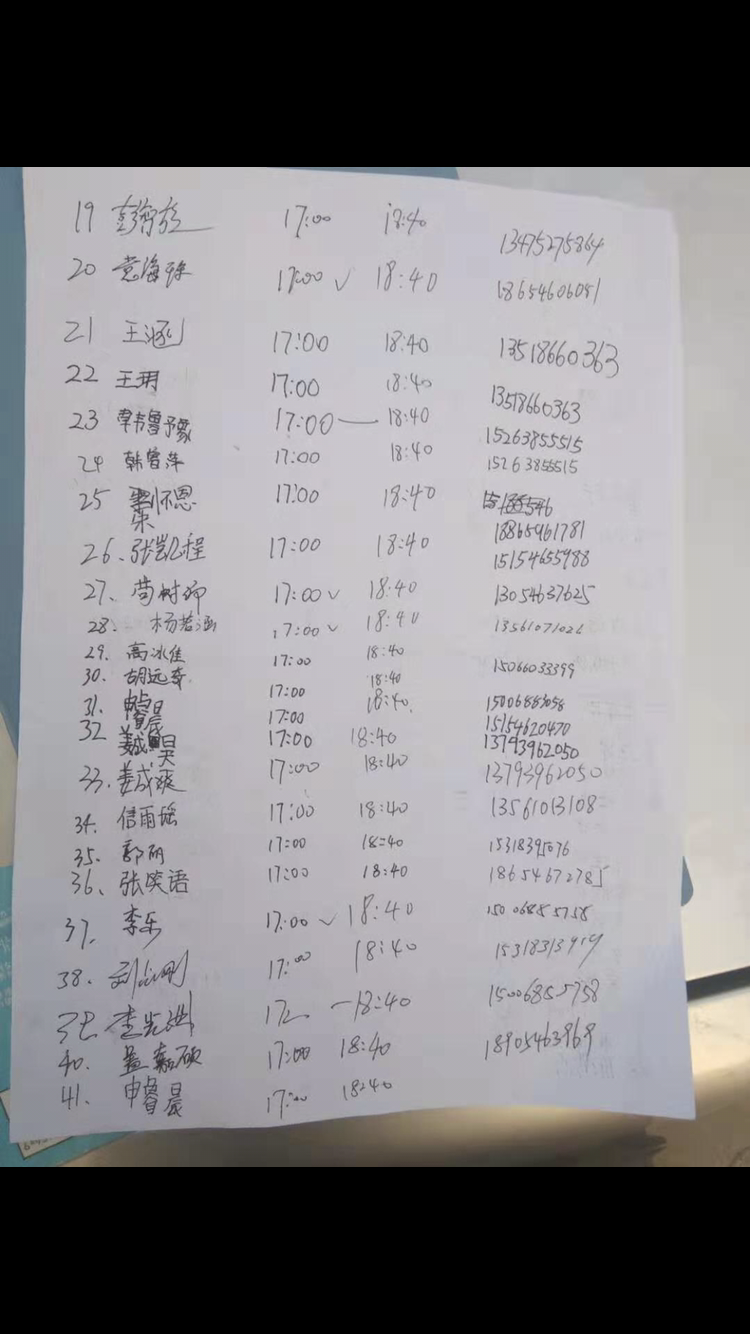 19 17:00 18:40 13475275864
20 17:00 √ 18:40 18654606081
21 王涵 17:00 18:40 13518660363
22 王玥 17:00 18:40 13518660363
23 韩鲁予豪 17:00 — 18:40 15263855515
24 韩鲁萍 17:00 18:40 15263855515
25 刘怀恩 17:00 18:40 18865461781
26、张凯程 17:00 18:40 15154655988
27、苟树 17:00 √ 18:40 13054637625
28. 杨若涵 17:00 √ 18:40
29. 高冰佳 17:00 18:40 15066033399
30. 胡远 17:00 18:40
31. 申睿晨 17:00 18:40 15154620470
32 姜成昊 17:00 18:40 13793962050
33. 姜成爽 17:00 18:40 13793962050
34. 信雨瑶 17:00 18:40 13561013108
35. 郭丽 17:00 18:40 15318395076
36、张笑语 17:00 18:40 18654672785
37. 李乐 17:00 √ 18:40 15006855758
38. 17:00 18:40
李光 18:40 15006855758
40. 盖嘉硕 17:00 18:40 18905463969
41. 申睿晨 17:00 18:40